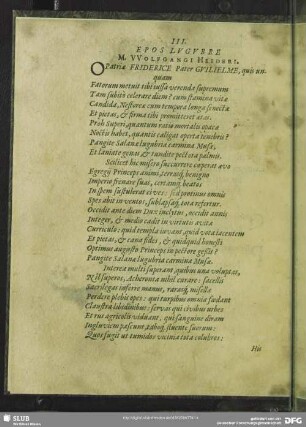 III.
EPOS LVGVBRE
M. VVOLFGANGI HEIDERI.
O Patriæ FRIDERICE Pater GVILIELME, quis un-
quam
Fatorum metuit tibi iussa verenda supremum
Tam subitò celerare diem? cum stamina vitæ
Candida, Nestoreæ cum tempora longa senectæ
Et pietas, & firma tibi promitteret ætas.
Proh Superi, quantum ratio mortalis opacæ
Noctis habet, quantis caligat operta tenebris?
Pangite Salanæ lugubria carmina Musæ,
Et laniate genas & tundite pectora palmis.
Scilicet hic misero succurrere ceperat ævo
Egregij Princeps animi, benigno
Imperio frenare suos, certamq́; beatos
In spem sustulerat cives: sed protinus omnis
Spes abit in ventos, tota refertur.
Occidit ante diem Dux inclytus, occidit annis
Integer, & medio cadit in virtutis avita
Curriculo: quid templa iuvant, quid vota iacentem
Et pietas, & cana fides, & quicquid honesti
Optimus augusto Princeps in pectore gessit?
Pangite Salanæ lugubria carmina Musæ.
Interea multi superant, quibus una voluptas,
Nil Superos, Acheronta nihil curare: sacrilis
Sacrilegas inferre manus, nihilo
Perdere plebis opes: qui turpibus omnia fædant
Claustra libidinibus: servas qui civibus urbes
Et rus agricolis viduant, qui sanguine diram
Ingluviem pascunt, fluente suorum:
Quos fugit ut tumidos vicina viia colubros:
Hic
SLUB
DFG